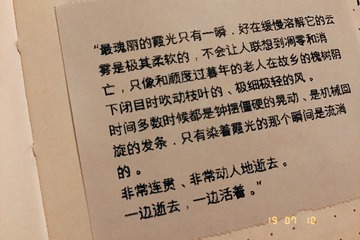 “最瑰丽的霞光只有一瞬，好在缓慢溶解它的云
雾是极其柔软的，不会让人联想到凋零和消
亡，只像和顺度过暮年的老人在故乡的槐树阴
下闭目时吹动枝叶的、极细极轻的风。
时间多数时候都是钟摆僵硬的晃动、是机械回
旋的发条，只有染着霞光的那个瞬间是流淌
的。
非常连贯、非常动人地逝去。
一边逝去，一边活着。”
19 07 10